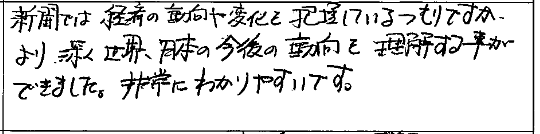 新聞では経済の動向や変化を把握しているつもりですが、
より深く世界、日本の今後の動向を理解する事が
できました。非常にわかりやすいです。